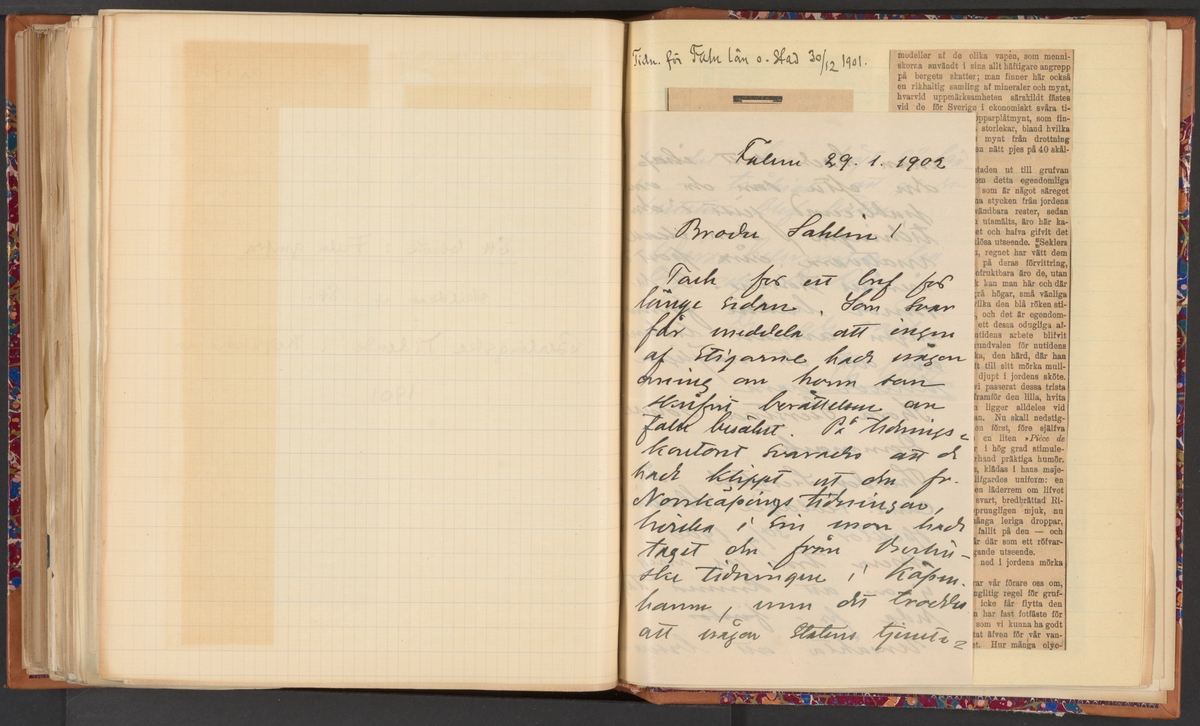 Tidn. för Falu län o. Stad 30/12 1901.
Falun 29.1.1902
Broder Sahlin!
Tack för ett bref för
länge sedan. Som svar
får meddela att ingen
af Stigarne hade någon
aning om hvem som
skrifvit berättelsen om
Falu besöket. På tidnings=
kontoret svarades att de
hade klippt ut den fr.
Norrköpings tidningar,
hvilka i sin mon hade
taget den från Berlin-
ske tidningen i Köpen-
hamn, men det troddes
att någon Statens tjenste=
modeller af de olika vapen, som menni-
skorna användt i sina allt häftigare angrepp
på bergets skatter; man finner här också
en rikhaltig samling af mineraler och mynt,
hvarvid uppmärksamheten särskildt fästes
vid de för Sverige i ekonomiskt svåra ti-
opparplåtmynt, som fin-
storlekar, bland hvilka
mynt från drottning
en nätt pjes på 40 skål-
staden ut till grufvan
om detta egendomliga
som är något säreget
na stycken från jordens
vändbara rester, sedan
utsmälts, äro här ka-
et och hafva gifvit det
lösa utseende. "Seklers
, regnet har vätt dem
på deras förvittring,
ofruktbara äro de, utan
k kan man här och där
grå högar, små vänliga
ilka den blå röken sti-
, och det är egendom-
ett dessa odugliga af-
utidens arbete blifvit
undvalen för nutidens
ka, den härd, där han
ft till sitt mörka mull-
djupt i jordens sköte.
vi passerat dessa trista
framför den lilla, hvita
ligger alldeles vid
an. Nu skall nedstig-
en först, före själfva
en liten »Pièce de
r i hög grad stimule-
rhand präktiga humör.
s, klädas i hans maje-
lifgardes uniform: en
en läderrem om lifvet
svart, bredbrättad Ri-
prungligen mjuk, nu
ånga leriga droppar,
fallit på den — och
är där som ett röfvar-
gande utseende.
ned i jordens mörka
rar vår förare oss om,
nglitig regel för gruf-
icke får flytta den
n har fast fotfäste för
som vi kunna ha godt
tat äfven för vår van-
et. Hur många olyc-